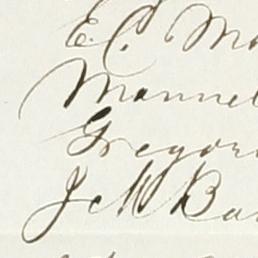 E. C. Mo
Mannel
Gregori
J M Ba